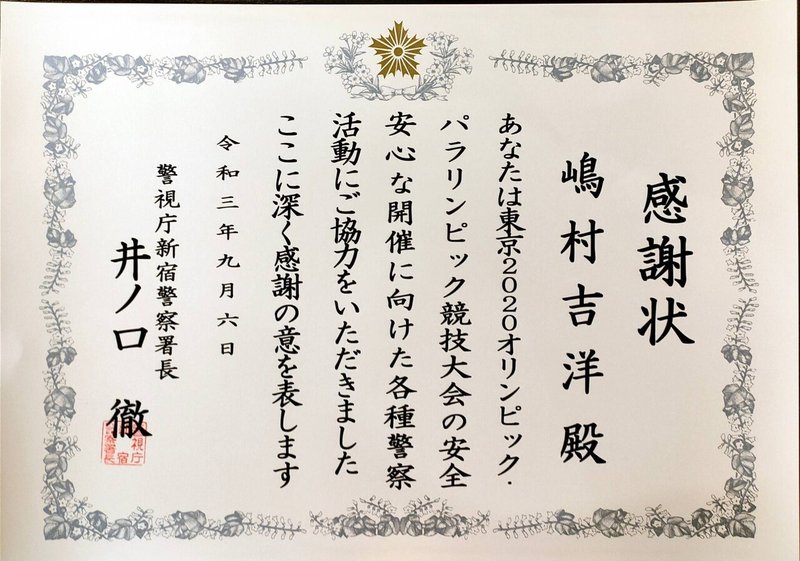 感謝状
嶋村吉洋殿
あなたは東京2020オリンピック・
パラリンピック競技大会の安全
安心な開催に向けた各種警察
活動にご協力をいただきました
ここに深く感謝の意を表します
令和三年九月六日
警視庁新宿警察署長
井ノ口 徹